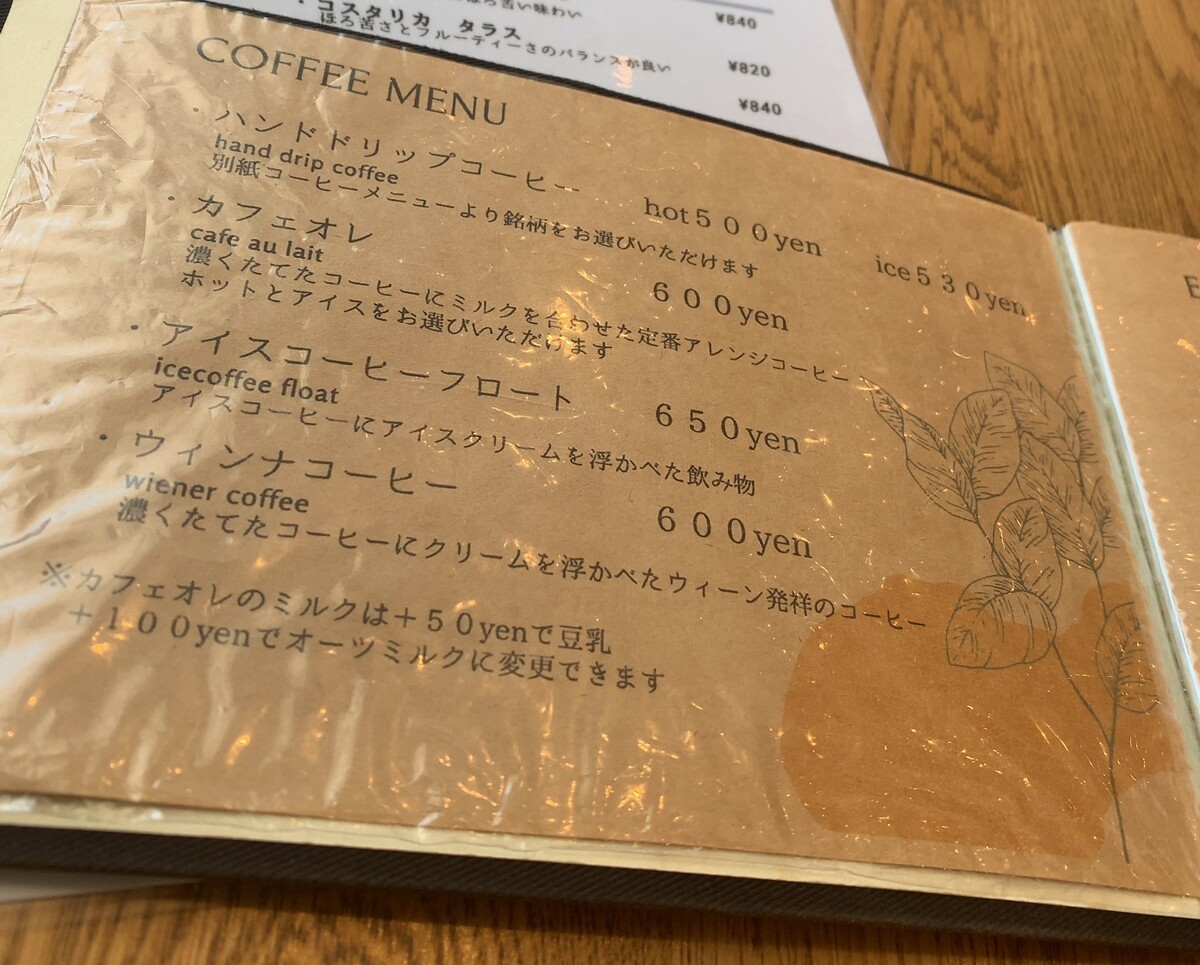 ほろ苦い味わい
¥840
・コスタリカ タラス
ほろ苦さとフルーティーさのバランスが良い
¥820
¥840
COFFEE MENU
・ハンドドリップコーヒー hot500yen ice530yen
hand drip coffee
別紙コーヒーメニューより銘柄をお選びいただけます
・カフェオレ 600yen
cafe au lait
濃くたてたコーヒーにミルクを合わせた定番アレンジコーヒー
ホットとアイスをお選びいただけます
・アイスコーヒーフロート 650yen
icecoffee float
アイスコーヒーにアイスクリームを浮かべた飲み物
・ウィンナコーヒー 600yen
wiener coffee
濃くたてたコーヒーにクリームを浮かべたウィーン発祥のコーヒー
※カフェオレのミルクは+50yenで豆乳
+100yenでオーツミルクに変更できます
E